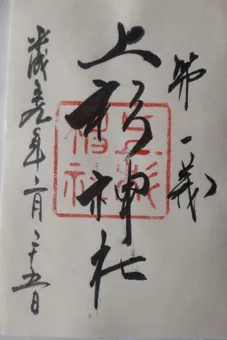 第一義
上杉神社
上杉神社
平成 年二月二十五日